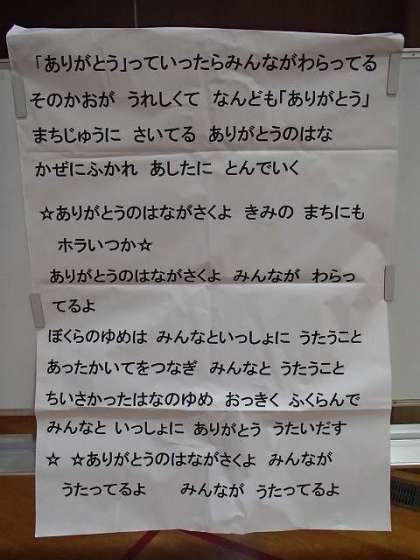 「ありがとう」っていったらみんながわらってる
そのかおが うれしくて なんども「ありがとう」
まちじゅうに さいてる ありがとうのはな
かぜにふかれ あしたに とんでいく
☆ありがとうのはながさくよ きみの まちにも
ホラいつか☆
ありがとうのはながさくよ みんなが わらっ
てるよ
ぼくらのゆめは みんなといっしょに うたうこと
あったかいてをつなぎ みんなと うたうこと
ちいさかったはなのゆめ おっきく ふくらんで
みんなと いっしょに ありがとう うたいだす
☆ ☆ありがとうのはながさくよ みんなが
うたってるよ みんなが うたってるよ